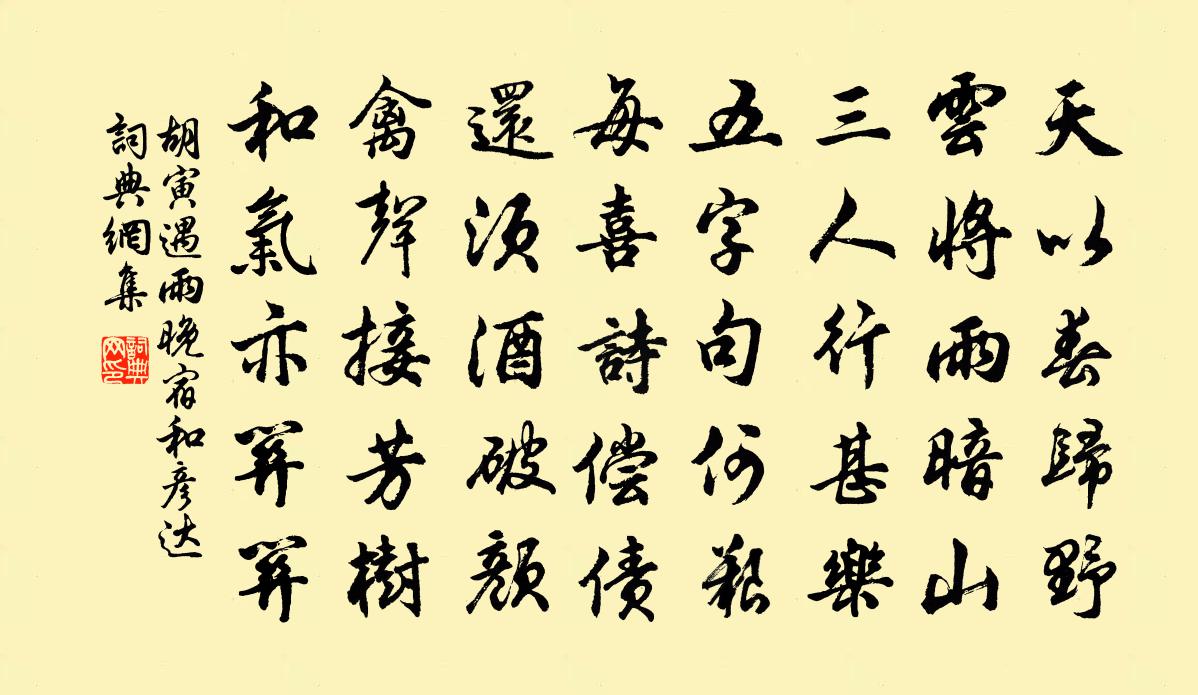 天以春歸野
雲將雨暗山
三人行甚樂
五字句何艱
每喜詩偿债
還須酒破顏
禽聲接芳樹
和氣亦關關
胡寅遇雨晚宿和彦达
詞典網集
詞典网印